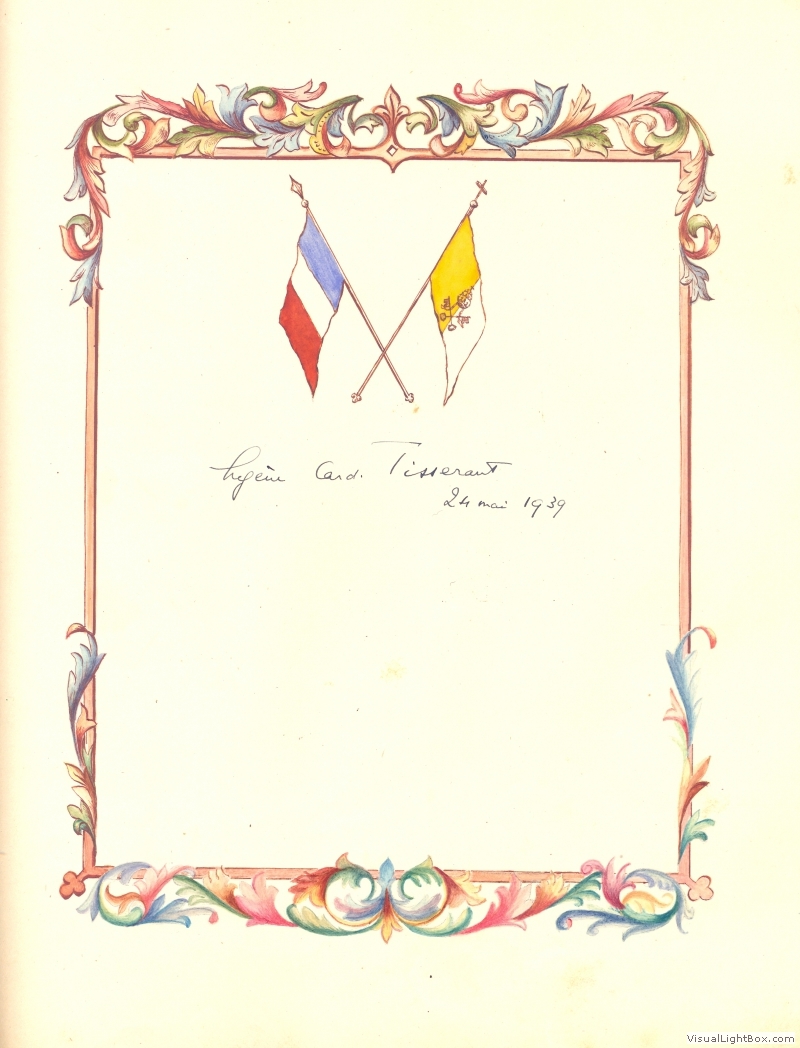 Eugène Card. Tisserant
24 mai 1939
VisualLightBox.com